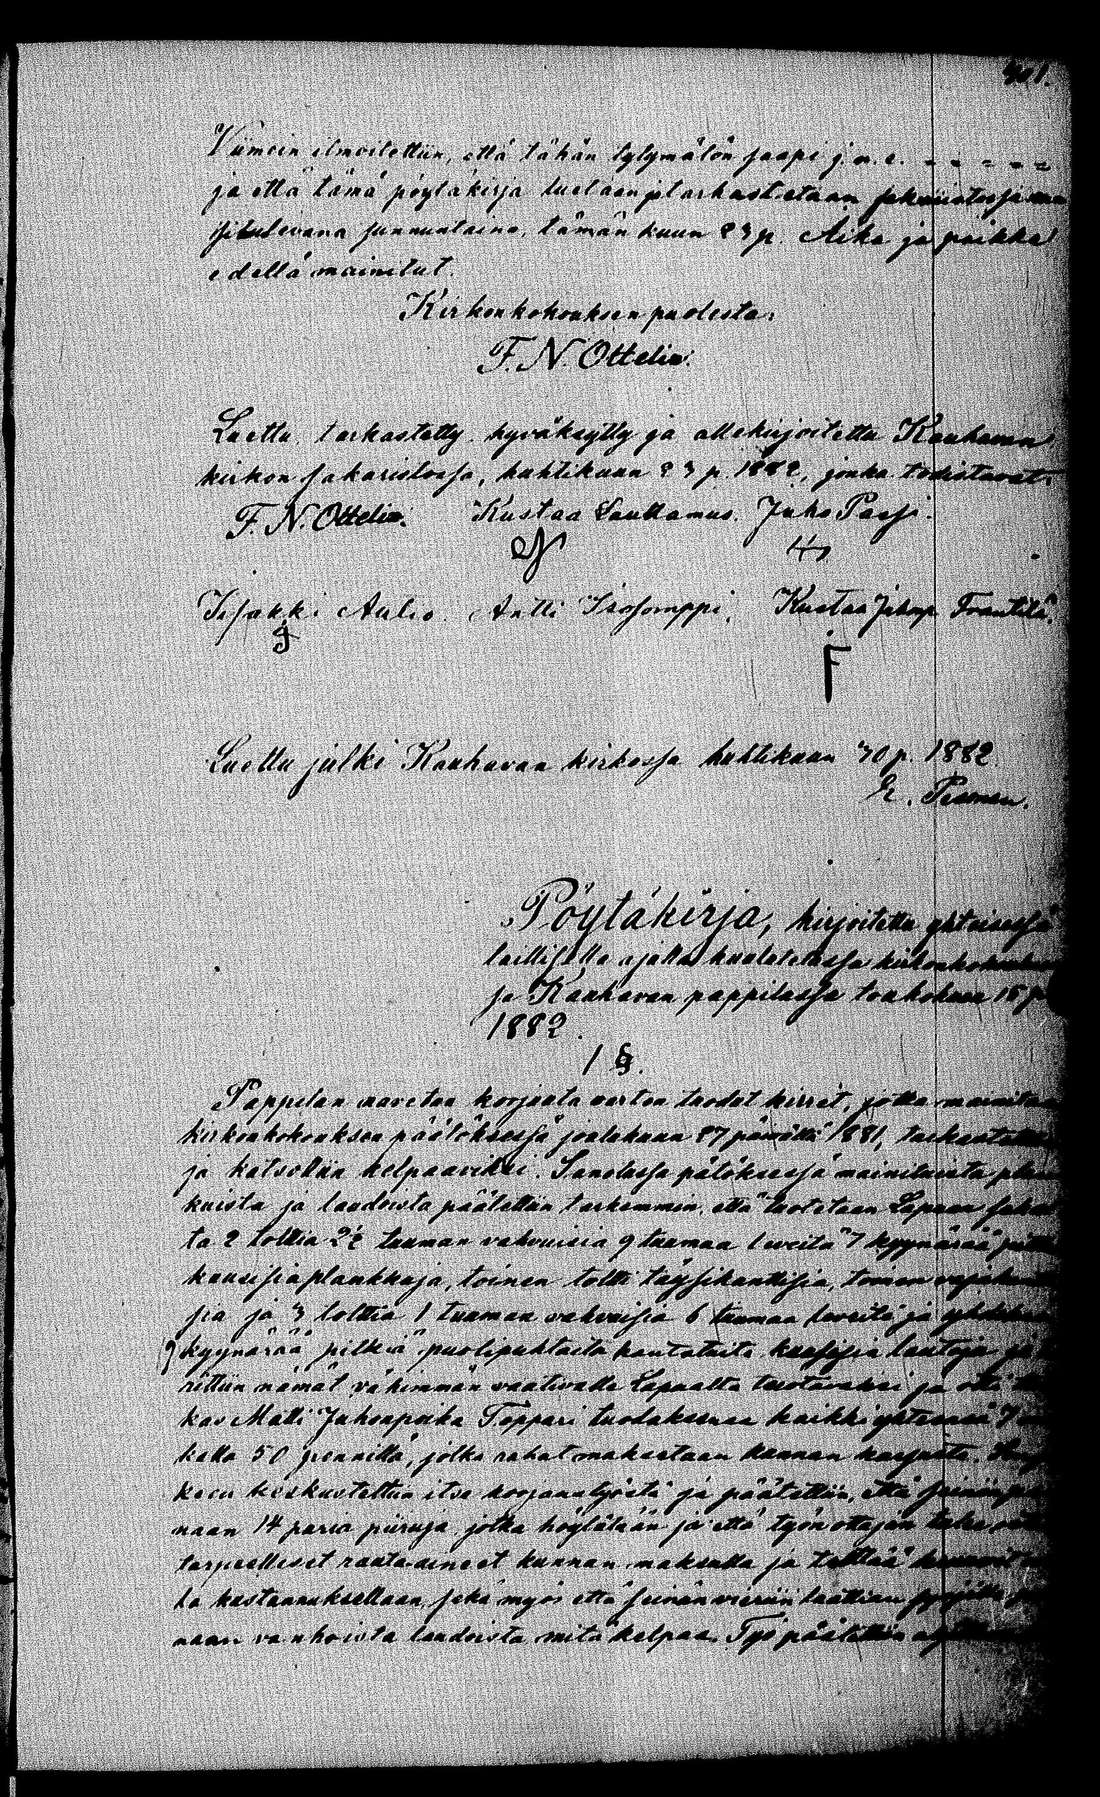 401.
Viimein ilmoitettiin, että tähän tytymätön saapi j. n. e. - - = = =
ja että tämä pöytäkirja luetaan ja tarkastetaan sakaristossa
situlevana sunnuntaina, tämän kuun 23 p. Aika ja paikka
edellä mainitut.
Kirkonkokouksen puolesta:
F. N. Ottelin.
Luettu, tarkastettu, hyväksytty ja allekirjoitettu Kauhavan
kirkon sakaristossa, huhtikuun 23 p. 1882, jonka todistavat:
F. N. Ottelin. Kustaa Lauttamus. Juho Passi.
Isakki Aulio. Antti Isosomppi. Kustaa Juhonp. Frantilä.
Luettu julki Kauhavan kirkossa huhtikuun 30 p. 1882.
Pöytäkirja, kirjoitettu yhteisessä
laillisella ajalla kuulutetussa
sa Kauhavan pappilassa toukokuun 15 p.
1882.
1 §.
Pappilan navetan korjausta varten tuodut hirret, jotka
kirkonkokouksen päätöksessä joulukuun 27 päivältä 1881,
ja katsottiin kelpaaviksi. Sanotussa pätöksessä mainituista
kuista ja laudoista päätettiin tarkemmin, että tuotetaan Lapuan
ta 2 tolttia 2½ tuuman vahvuisia 9 tuumaa leveitä 7 kyynärää
kuusisia plankkuja, toinen toltti täysikanttisia, toinen
sia ja 3 tolttia 1 tuuman vahvuisia 6 tuumaa leveitä ja
9 kyynärää pitkiä puolipuhtaita kuusisia lautoja
rittiin nämät vähimmän vaativalle Lapualta tuotavaksi ja
kas Matti Juhonpoika Toppari tuodaksensa kaikki yhteensä 7
kalla 50 pennillä, jotka rahat maksetaan kunnan kassasta.
keen keskusteltiin itse korjaustyöstä ja päätettiin, että
naan 14 paria piiruja jotka höylätään ja että työnottajan
tarpeelliset rauta-aineet kunnan maksulla ja
la kustannuksellaan, sekä myös että seinän vieriin laattian
naan vanhoista laudoista mitä kelpaa. Työ päätettiin